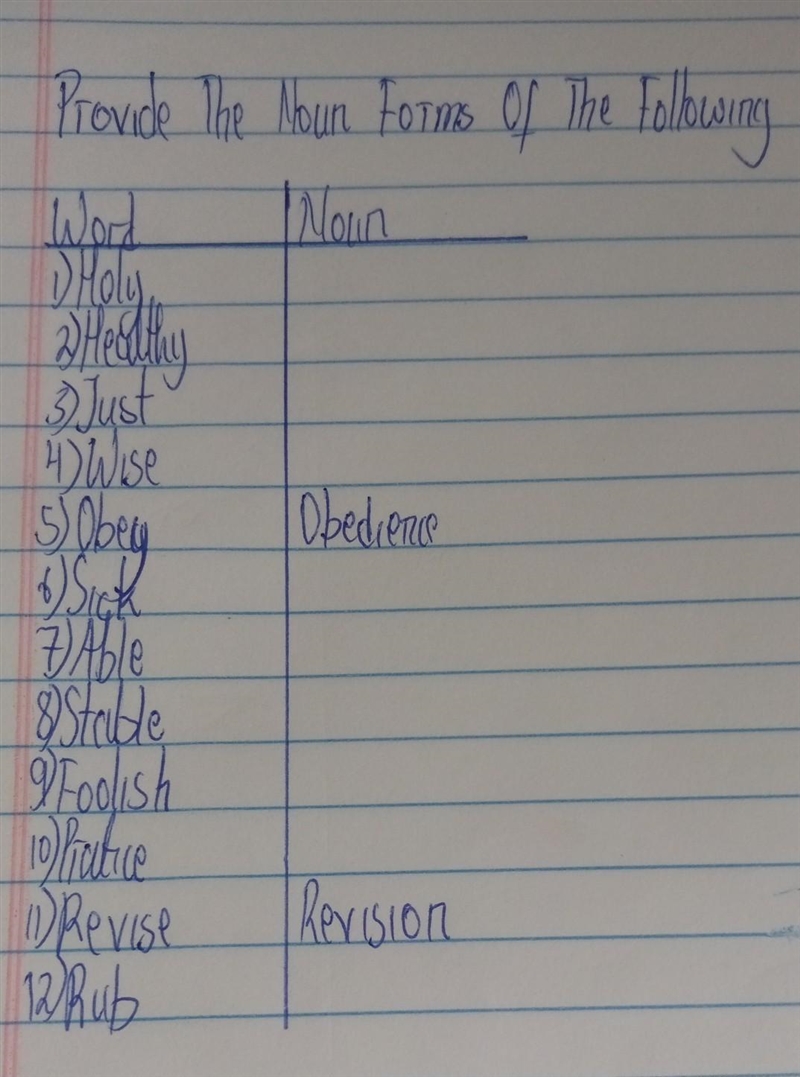 Provide The Noun Forms Of The Following
Word Noun
1) Holy
2) Healthy
3) Just
4) Wise
5) Obey Obedience
6) Sick
7) Able
8) Stable
9) Foolish
10) Pratice
11) Revise Revision
12) Rub